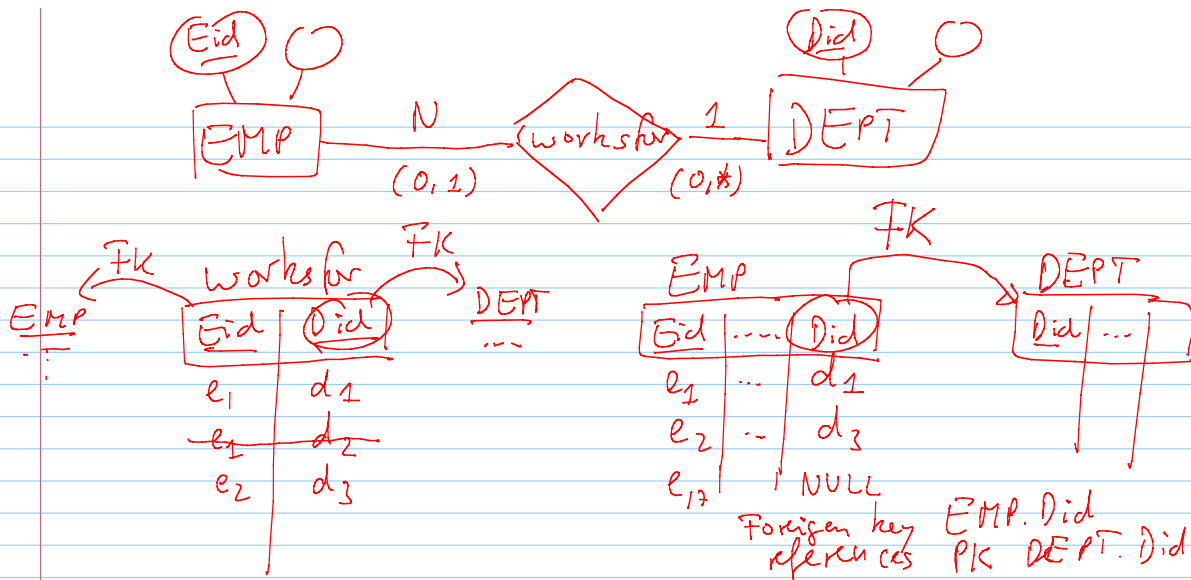 Eid Did
EMP N worksfor 1 DEPT
(0,1) (0,*)
FK worksfor FK
EMP Eid Did DEPT
... ...
e1 d1
e1 d2
e2 d3
FK
EMP DEPT
Eid ..... Did Did ...
e1 ... d1
e2 ... d3
e17 NULL
Foreigen key EMP.Did
references PK DEPT.Did